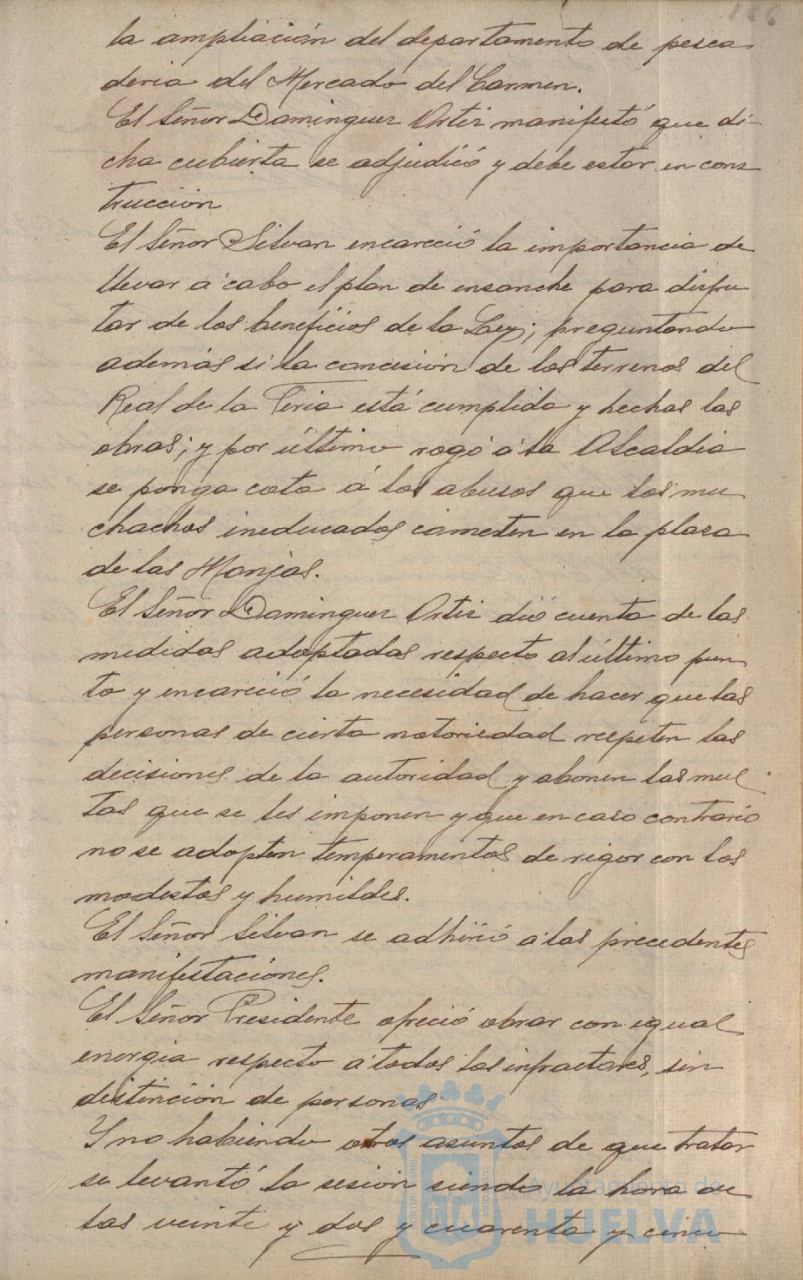 166
la ampliación del departamento de pesca
deria del Mercado del Carmen.
El Señor Dominguez Ortiz manifestó que di-
cha cubierta se adjudicó y debe estar en cons
trucción
El Señor Silvan encareció la importancia de
llevar á cabo el plan de ensanche para disfru
tar de los beneficios de la Ley; preguntando
además si la concesión de los terrenos del
Real de la Feria está cumplida y hechas las
obras; y por último rogó á la Alcaldia
se ponga coto á los abusos que los mu
chachos ineducados cometen en la plaza
de las Monjas.
El Señor Dominguez Ortiz dió cuenta de las
medidas adoptadas respecto al último pun
to y encareció la necesidad de hacer que las
personas de cierta notoriedad respeten las
decisiones de la autoridad y abonen las mul
tas que se les imponen y que en caso contrario
no se adopten temperamentos de rigor con los
modestos y humildes.
El Señor Silvan se adhirió a las precedentes
manifestaciones.
El Señor Presidente ofreció obrar con igual
energia respecto a todos los infractores, sin
distinción de personas
Y no habiendo otros asuntos de que tratar
se levantó la sesión siendo la hora de
las veinte y dos y cuarenta y cinco
Ayuntamiento de
HUELVA